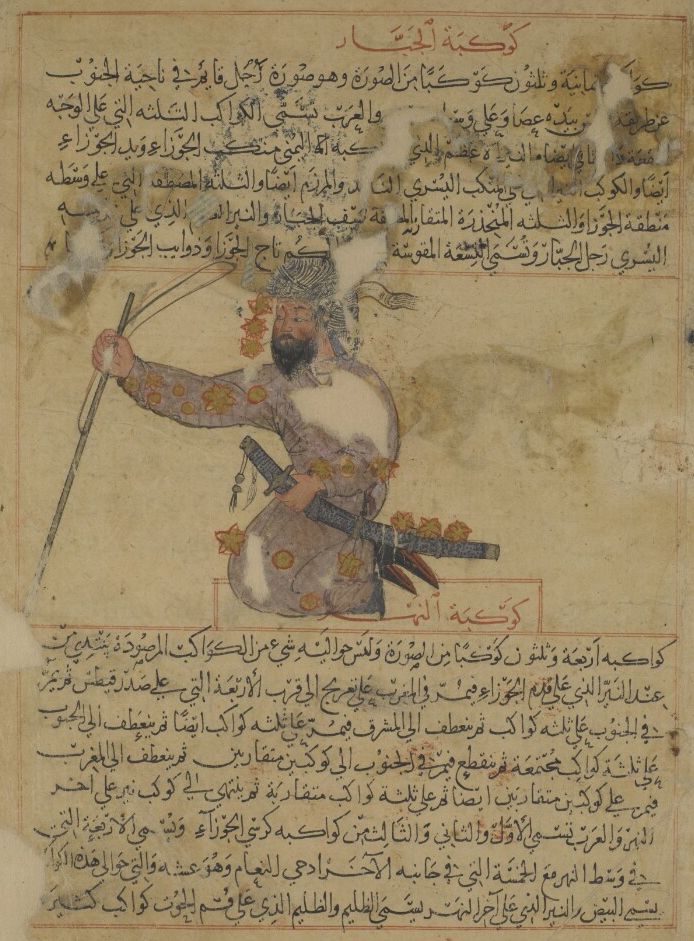 كوكبة الجبار
ثمانية وثلثون كوكبا من الصورة وهو صورة رجل قايم في ناحية الجنوب
بيده عصا وعلى وسطه والعرب تسمي الكواكب الثلثه التي على الوجه
ايضا والنير الاحمر العظيم الذي على منكبه الايمن منكب الجوزاء ويد الجوزاء
ايضا والكوكب الذي على المنكب اليسرى الناجد والمرزم ايضا والثلثه المصطفة التي على وسطه
منطقة الجوزا والثلثه المنحدرة المتقاربة المصطفة سيف الجبار والنير الذي على قدمه
اليسرى رجل الجبار وتسمى التسعة المقوسة الكم تاج الجوزا وذوايب الجوزا
كوكبة النهر
كواكبه اربعة وثلثون كوكبا من الصورة وليس حواليه شيء من الكواكب المرصودة يبتدي من
عند النير الذي على قدم الجوزاء فيمر في المغرب على تعريج الى قرب الاربعة التي على صدر قيطس ثم يمر
في الجنوب على ثلثه كواكب ثم ينعطف الى المشرق فيمر على ثلثه كواكب ايضا ثم ينعطف الى الجنوب
على ثلثة كواكب مجتمعة ثم ينقطع فيمر في الجنوب الى كوكبين متقاربين ثم ينعطف الى المغرب
فيمر على كوكبين متقاربين ايضا ثم على ثلثة كواكب متقاربة ثم ينتهي الى كوكب نير على اخر
النهر والعرب تسمي الاول والثاني والثالث من كواكبه كرسي الجوزاء وتسمي الاربعة التي
في وسط النهر مع الخمسة التي في جانبه الآخر ادحي النعام وهو عشه والتي حوالي هذه الكواكب
يسمى البيض والنير الذي على آخر النهر يسمى الظليم والظليم الذي على فم الحوت كواكب كثيرة